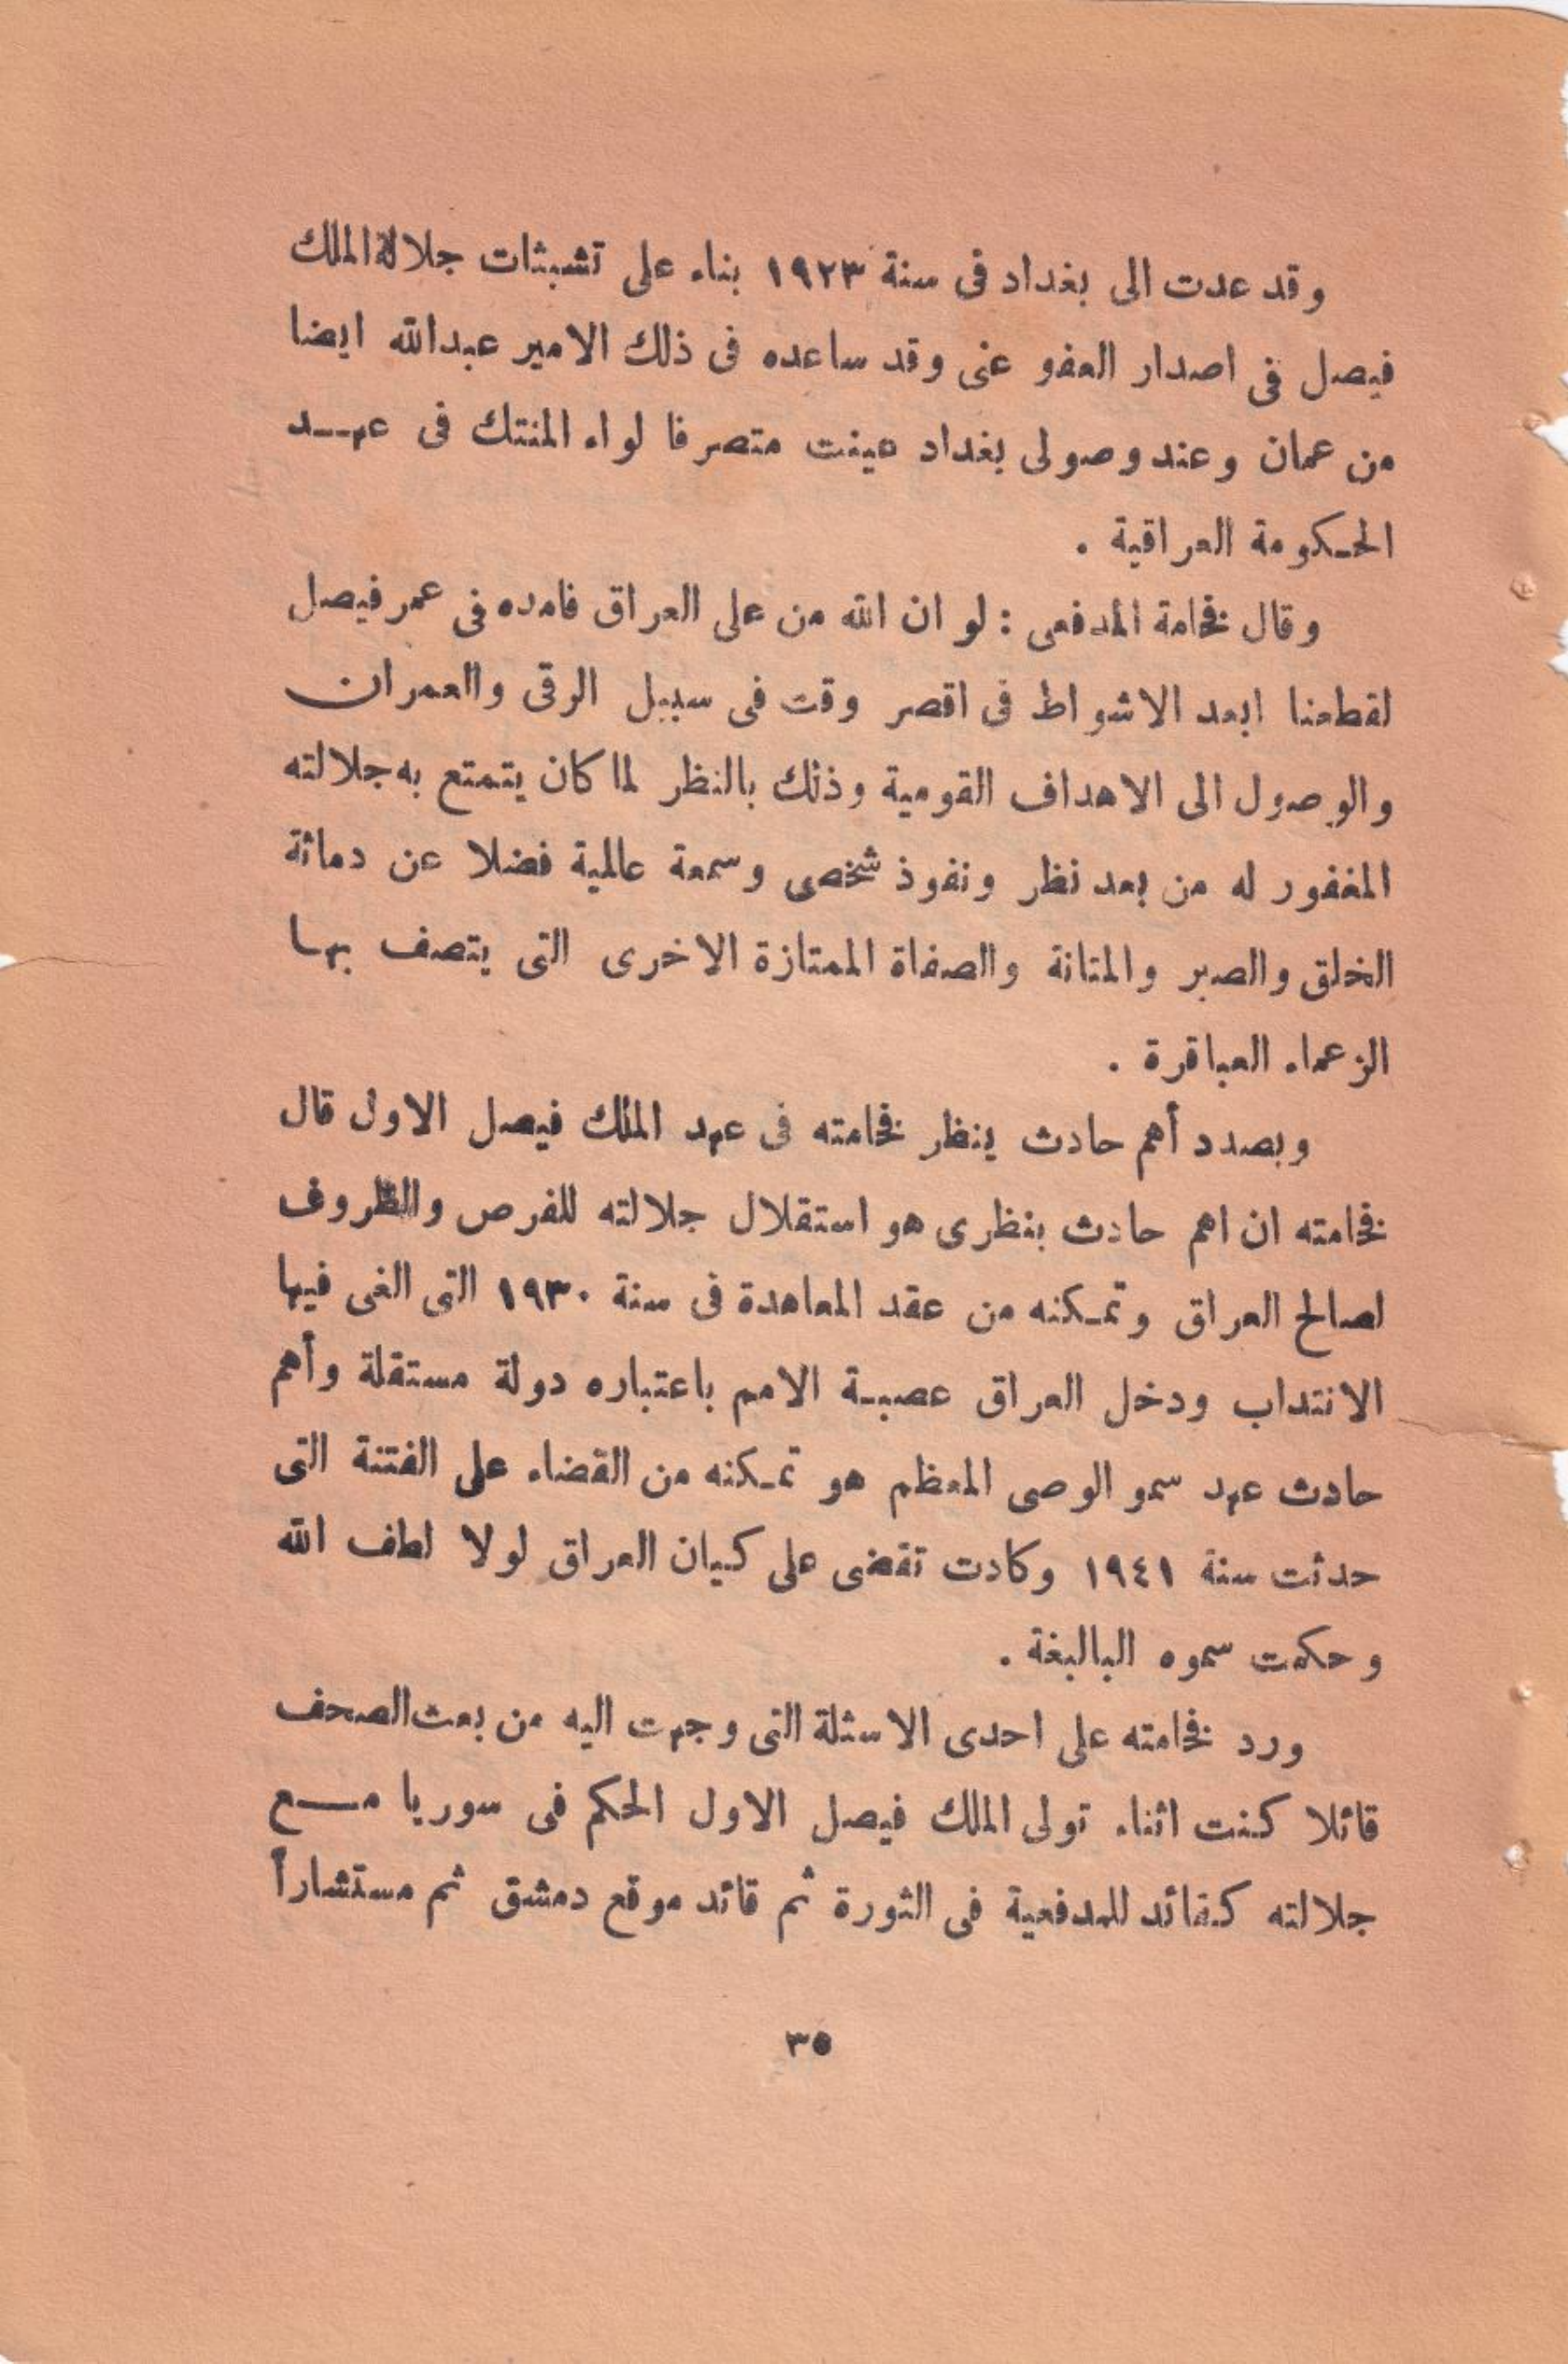 وقد عدت الى بغداد فى سنة ١٩٢٣ بناء على تشبثات جلالة الملك
فيصل فى اصدار العفو عنى وقد ساعده فى ذلك الامير عبدالله ايضا
من عمان وعند وصولى بغداد عينت متصرفا لواء المنتك فى عهد
الحكومة العراقية .
وقال فخامة المدفعى : لو ان الله من على العراق فامده فى عمر فيصل
لقطعنا ابعد الاشواط فى اقصر وقت فى سبيل الرقى والعمران
والوصول الى الاهداف القومية وذلك بالنظر لما كان يتمتع به جلالته
المغفور له من بعد نظر ونفوذ شخصى وسمعة عالمية فضلا عن دماثة
الخلق والصبر والمتانة والصفاة الممتازة الاخرى التى يتصف بها
الزعماء العباقرة .
وبصدد أهم حادث ينظر فخامته فى عهد الملك فيصل الاول قال
فخامته ان اهم حادث بنظرى هو استقلال جلالته للفرص والظروف
لصالح العراق وتمكنه من عقد المعاهدة فى سنة ١٩٣٠ التى الغى فيها
الانتداب ودخل العراق عصبة الامم باعتباره دولة مستقلة وأهم
حادث عهد سمو الوصى المعظم هو تمكنه من القضاء على الفتنة التى
حدثت سنة ١٩٤١ وكادت تقضى على كيان العراق لولا لطف الله
وحكمت سموه البالبغة .
ورد فخامته على احدى الاسئلة التى وجهت اليه من بعث الصحف
قائلا كنت اثناء تولى الملك فيصل الاول الحكم فى سوريا مع
جلالته كقائد للمدفعية فى الثورة ثم قائد موقع دمشق ثم مستشاراً
٣٥